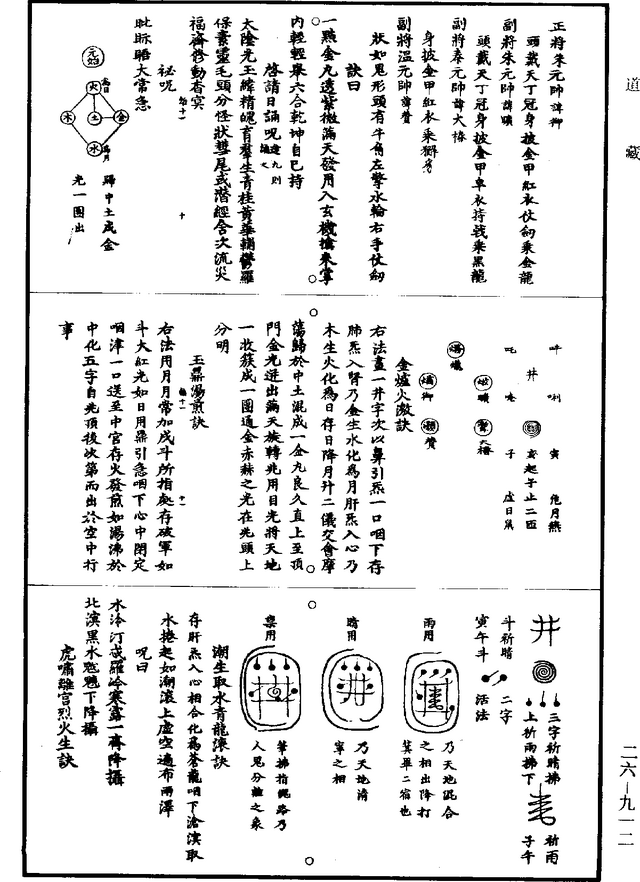 道藏
正將朱元帥諱柳
頭戴天丁冠身披金甲紅衣仗劒乘金龍
副將朱元帥諱曠
頭戴天丁冠身披金甲皁衣持戟乘黑龍
副將泰元帥諱大椿
身披金甲紅衣乘獬豸
副將溫元帥諱贊
狀如鬼形頭有牛角左擎水輪右手仗劒
訣曰
一點金丸透紫微滿天發用入玄機搶來掌
內輕輕舉六合乾坤自已持
啓請日誦呪
太陰光玉緯精魄育羣生青桂黃華輔鬱羅
保素靈毛頭分怪狀彗尾或潛經含次流災
福齋修動杳冥
祕呪
㕹眎晤大常急
元始
火
木
土
金
水
為日
為月
歸中土成金
光一團出
吽
唎
寅
危月燕
井
亥起子止二匝
吒
唵
子
虛日鼠
曠
大椿
柳
贊
金爐火激訣
右法畫一井字次以鼻引炁一口咽下存
肺炁入腎乃金生水化為月肝炁入心乃
木生火化為日存日降月升二儀交會摩
蕩歸於中土混成一金丸良久直上至頂
門金光迸出滿天旋轉兆用目光將天地
一收簇成一團通金赤赫之光在兆頭上
分明
玉鼎湯煎訣
右法用月月常加戌斗所指處存破軍如
斗大紅光如日用鼻引急咽下心中閉定
咽津一口送至中宮存火發煎如湯沸於
中化五字自兆頂後次第而出於空中打
事
三字祈晴拂
上祈雨拂下
祈雨
子午
斗祈晴
寅午斗
二字
活法
雨用
乃天地混合
之相出降打
箕畢二宿也
晴用
乃天地清
寧之相
禦用
筆拂指鬼路乃
人鬼分離之象
潮生取水青龍滾訣
存肝炁入心相合化為蒼龍咽下滄溟取
水捲起如潮滾上虛空遍布雨澤
呪曰
水泠汀成羅冷寒露一再降攝
北濱黑水魁魎下降攝
虎嘯離宮烈火生訣
二六—九一二